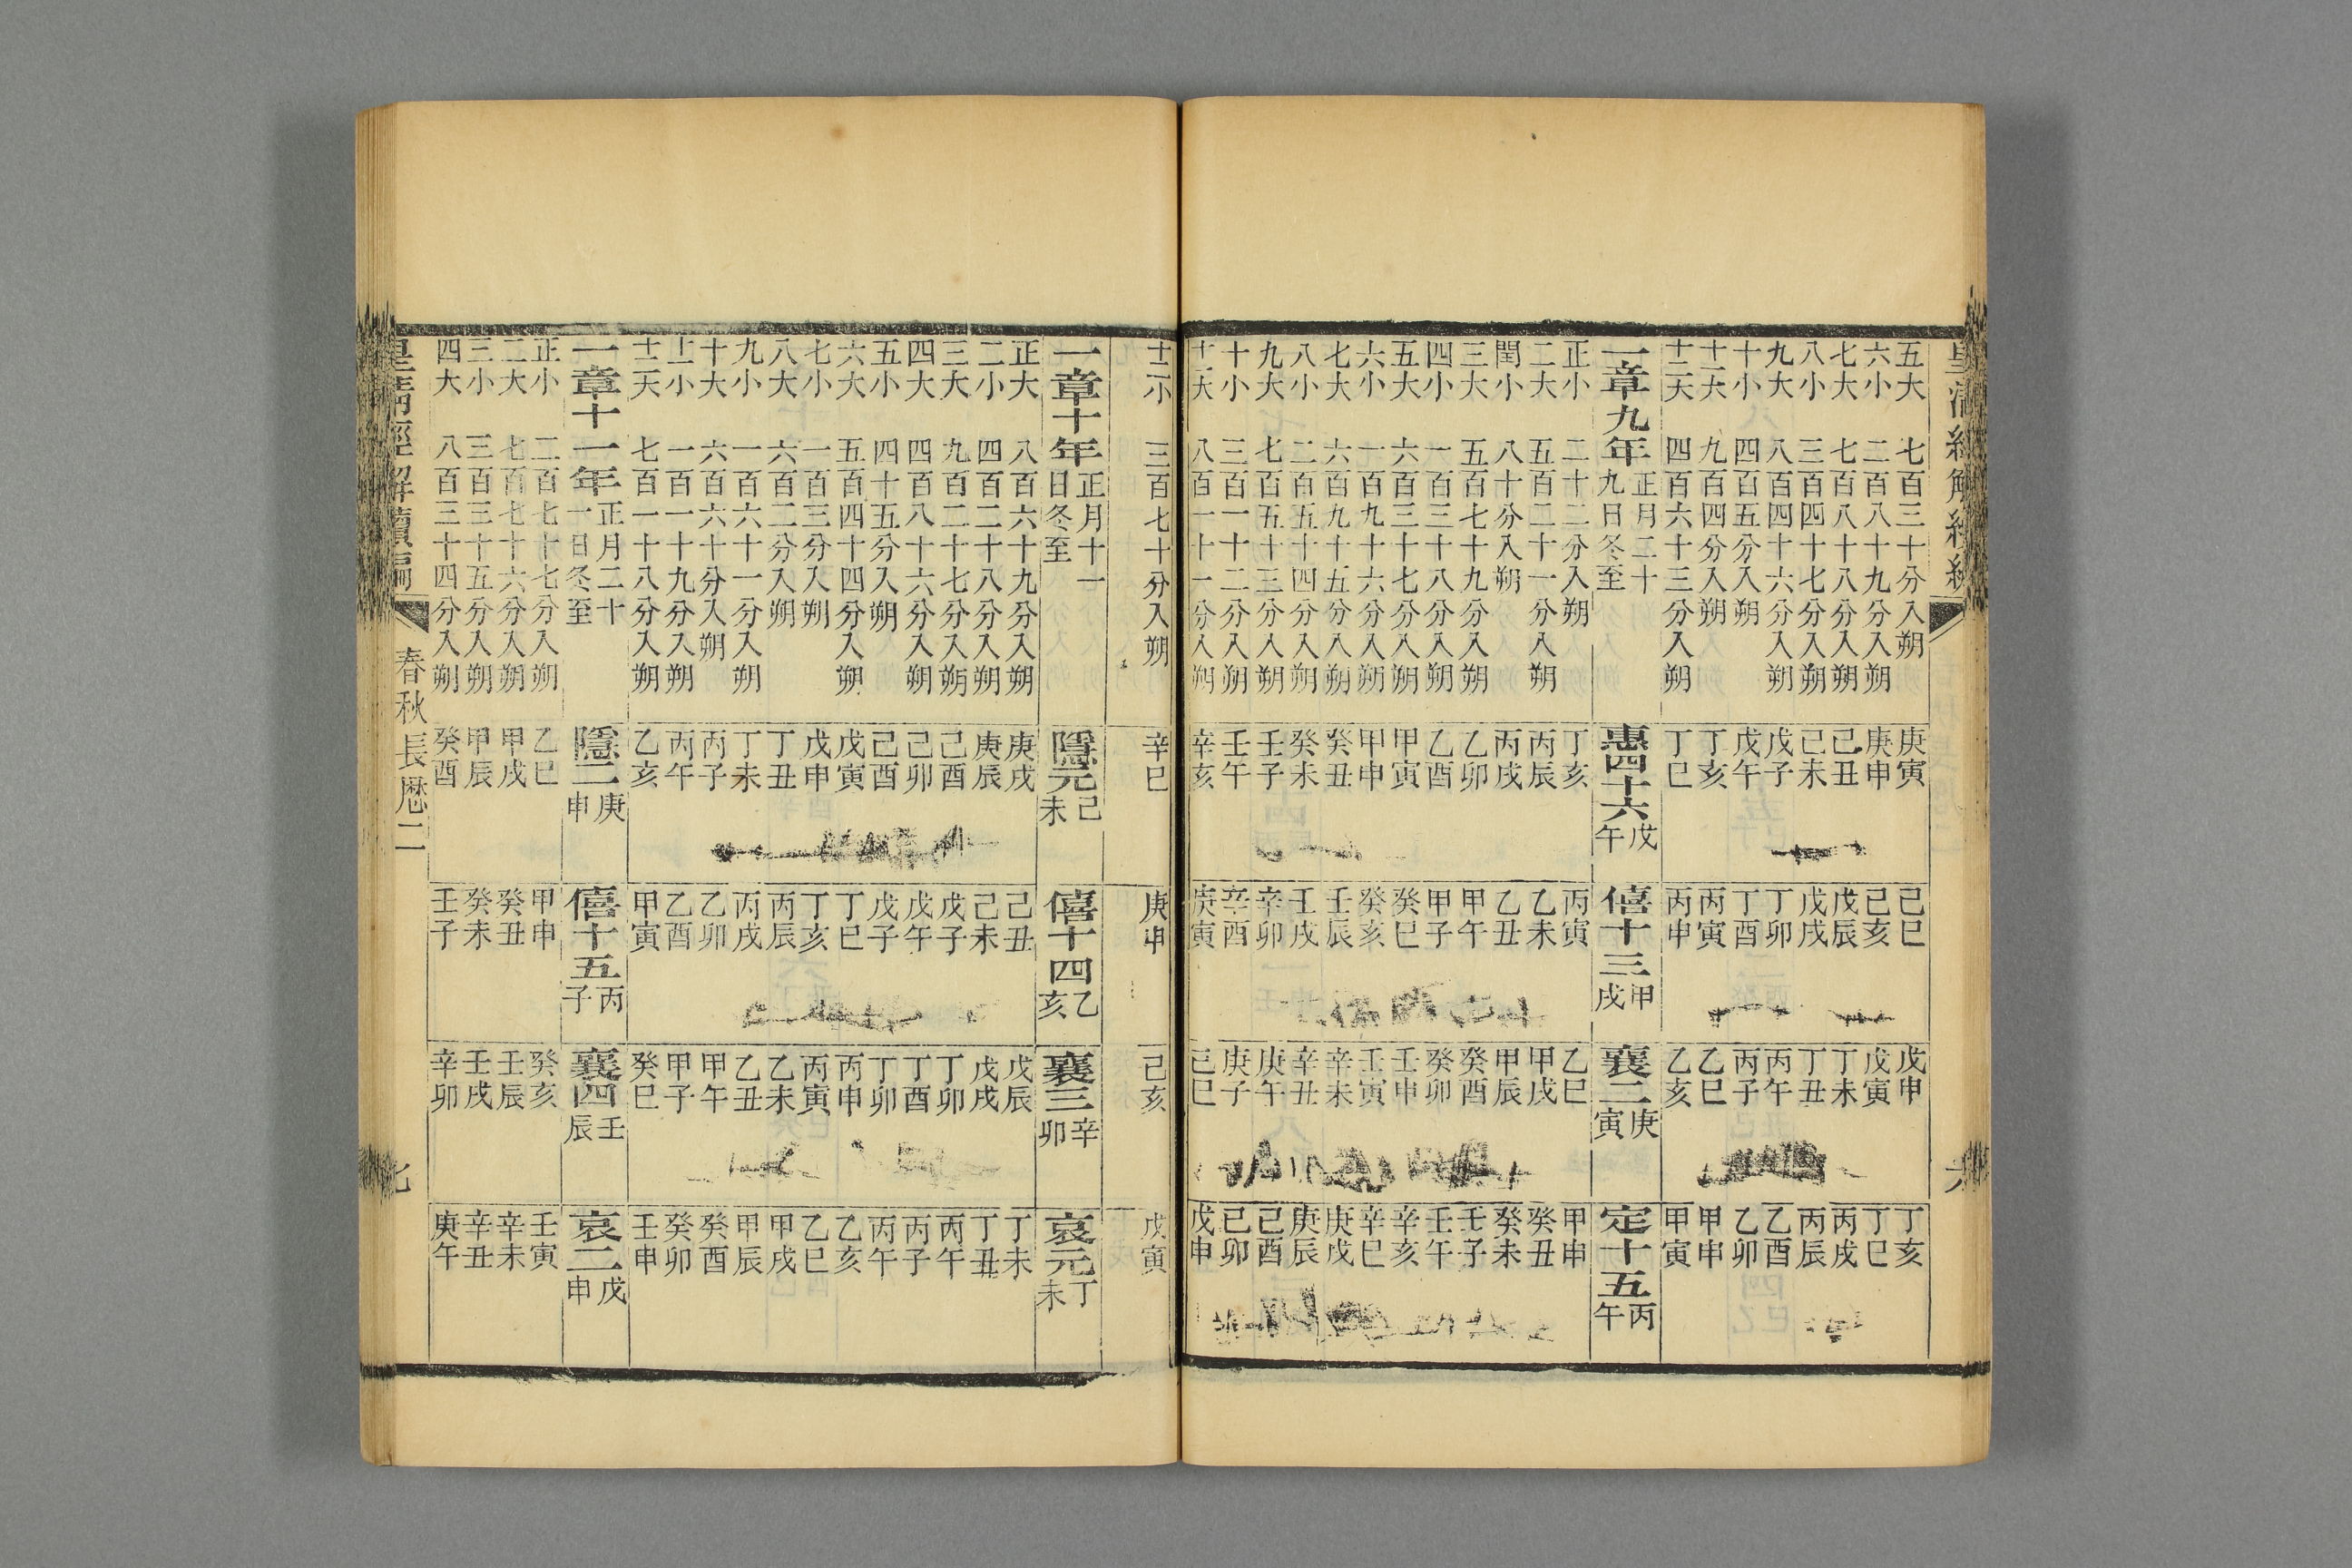 皇清經解續編 六
五大 七百三十分入朔 庚寅 己巳 戊申 丁亥
六小 二百八十九分入朔 庚申 己亥 戊寅 丁巳
七大 七百八十八分入朔 己丑 戊辰 丁未 丙戌
八小 三百四十七分入朔 己未 戊戌 丁丑 丙辰
九大 八百四十六分入朔 戊子 丁卯 丙午 乙酉
十小 四百五分入朔 戊午 丁酉 丙子 乙卯
十一大 九百四分入朔 丁亥 丙寅 乙巳 甲申
十二大 四百六十三分入朔 丁巳 丙申 乙亥 甲寅
一章九年 正月二十九日冬至 惠四十六戊午 僖十三甲戌 襄二庚寅 定十五丙午
正小 二十二分入朔 丁亥 丙寅 乙巳 甲申
二大 五百二十一分入朔 丙辰 乙未 甲戌 癸丑
閏小 八十分入朔 丙戌 乙丑 甲辰 癸未
三大 五百七十九分入朔 乙卯 甲午 癸酉 壬子
四小 一百三十八分入朔 乙酉 甲子 癸卯 壬午
五大 六百三十七分入朔 甲寅 癸巳 壬申 辛亥
六小 一百九十六分入朔 甲申 癸亥 壬寅 辛巳
七大 六百九十五分入朔 癸丑 壬辰 辛未 庚戌
八小 二百五十四分入朔 癸未 壬戌 辛丑 庚辰
九大 七百五十三分入朔 壬子 辛卯 庚午 己酉
十小 三百一十二分入朔 壬午 辛酉 庚子 己卯
十一大 八百一十一分入朔 辛亥 庚寅 己巳 戊申
十二小 三百七十分入朔 辛巳 庚申 己亥 戊寅
一章十年 正月十一日冬至 隱元己未 僖十四乙亥 襄三辛卯 哀元丁未
正大 八百六十九分入朔 庚戌 己丑 戊辰 丁未
二小 四百二十八分入朔 庚辰 己未 戊戌 丁丑
三大 九百二十七分入朔 己酉 戊子 丁卯 丙午
四大 四百八十六分入朔 己卯 戊午 丁酉 丙子
五小 四十五分入朔 己酉 戊子 丁卯 丙午
六大 五百四十四分入朔 戊寅 丁巳 丙申 乙亥
七小 一百三分入朔 戊申 丁亥 丙寅 乙巳
八大 六百二分入朔 丁丑 丙辰 乙未 甲戌
九小 一百六十一分入朔 丁未 丙戌 乙丑 甲辰
十大 六百六十分入朔 丙子 乙卯 甲午 癸酉
十一小 一百一十九分入朔 丙午 乙酉 甲子 癸卯
十二大 七百一十八分入朔 乙亥 甲寅 癸巳 壬申
一章十一年 正月二十一日冬至 隱二庚申 僖十五丙子 襄四壬辰 哀二戊申
正小 二百七十七分入朔 乙巳 甲申 癸亥 壬寅
二大 七百七十六分入朔 甲戌 癸丑 壬辰 辛未
三小 三百三十五分入朔 甲辰 癸未 壬戌 辛丑
四大 八百三十四分入朔 癸酉 壬子 辛卯 庚午
皇清經解續編 春秋長厤二 七